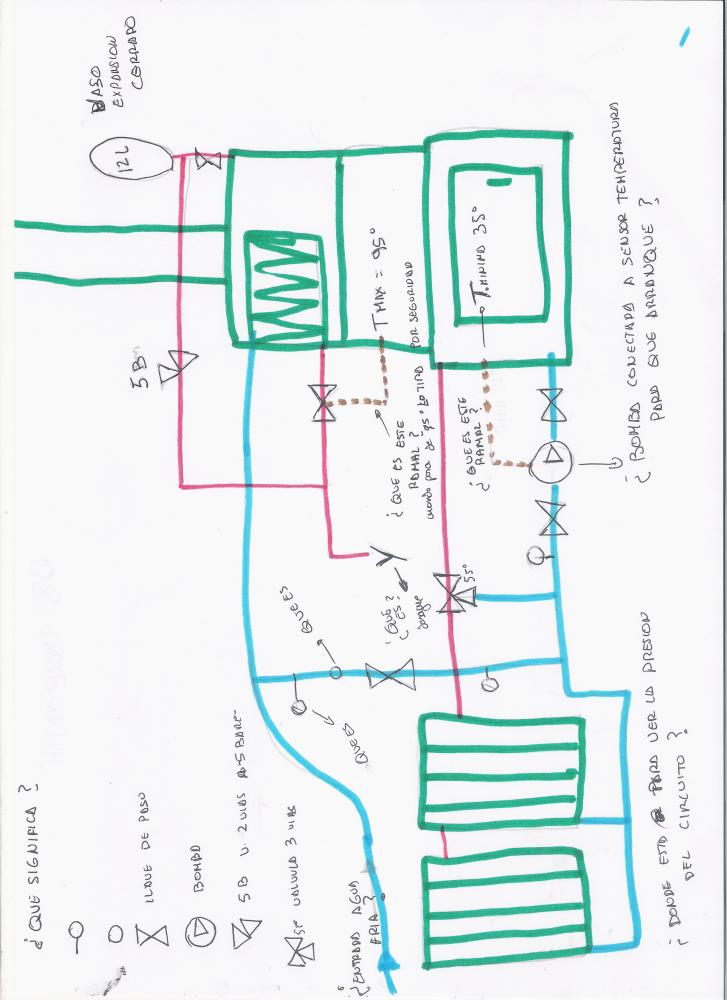 VASO
EXPANSION
CERRADO
12 L
5 B
T MAX = 95°
POR SEGURIDAD
¿ QUE ES ESTE
RAMAL ?
cuando pasa de 95° lo tira
T.MINIMA 35°
¿ QUE ES ESTE
RAMAL ?
¿ BOMBA CONECTADA A SENSOR TEMPERATURA
PARA QUE ARRANQUE ?
¿ QUE
ES ?
55°
QUE ES
QUE ES
¿ QUE SIGNIFICA ?
LLAVE DE PASO
BOMBA
5 B V. 2 VIAS
VALVULA 3 VIAS
¿ ENTRADA AGUA
FRIA ?
¿ DONDE ESTA PARA VER LA PRESION
DEL CIRCUITO ?